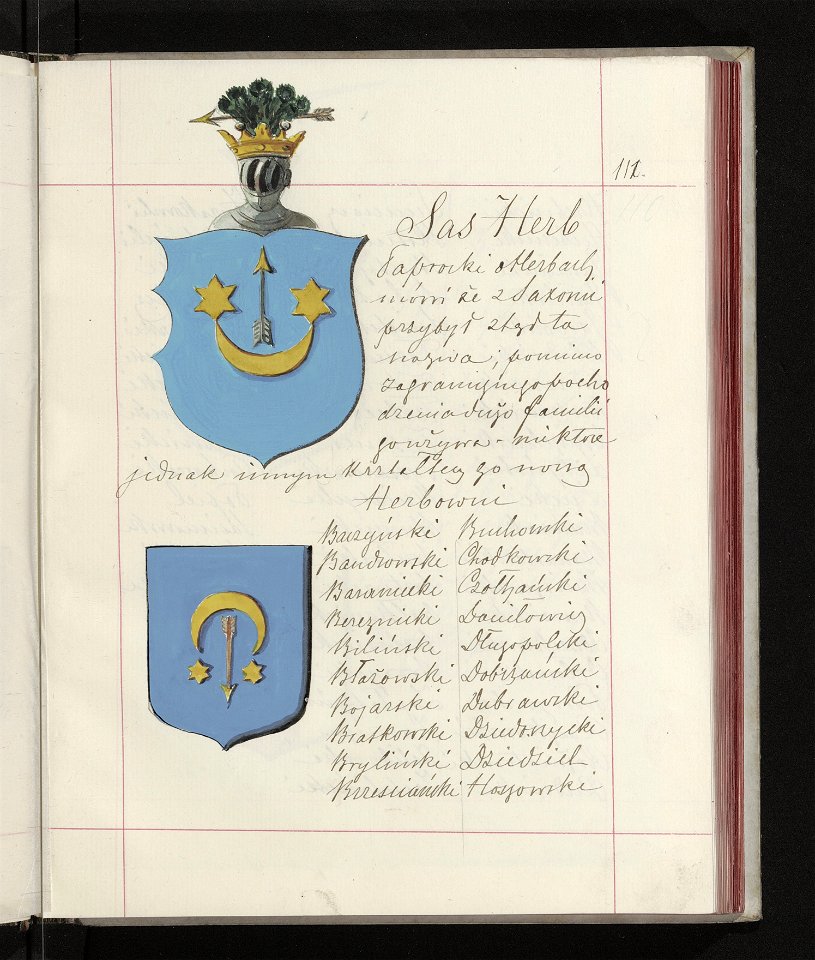 111.
Sas Herb
Paprocki o Herbach
mówi że z Saxonii
przybył ztąd ta
nazwa; pomimo
zagranicznego pocho
dzenia dużo familii
go używa - niektóre
jednak innym kształtem go noszą
Herbowni
Baczyński Buchowski
Bandrowski Chodkowski
Baraniecki Czołhański
Bereznicki Daniłowicz
Biliński Długopolski
Błażowski Dobrzański
Bojarski Dubrawski
Bratkowski Dzieduszycki
Bryliński Dziedziel
Brzesciański Hoszowski